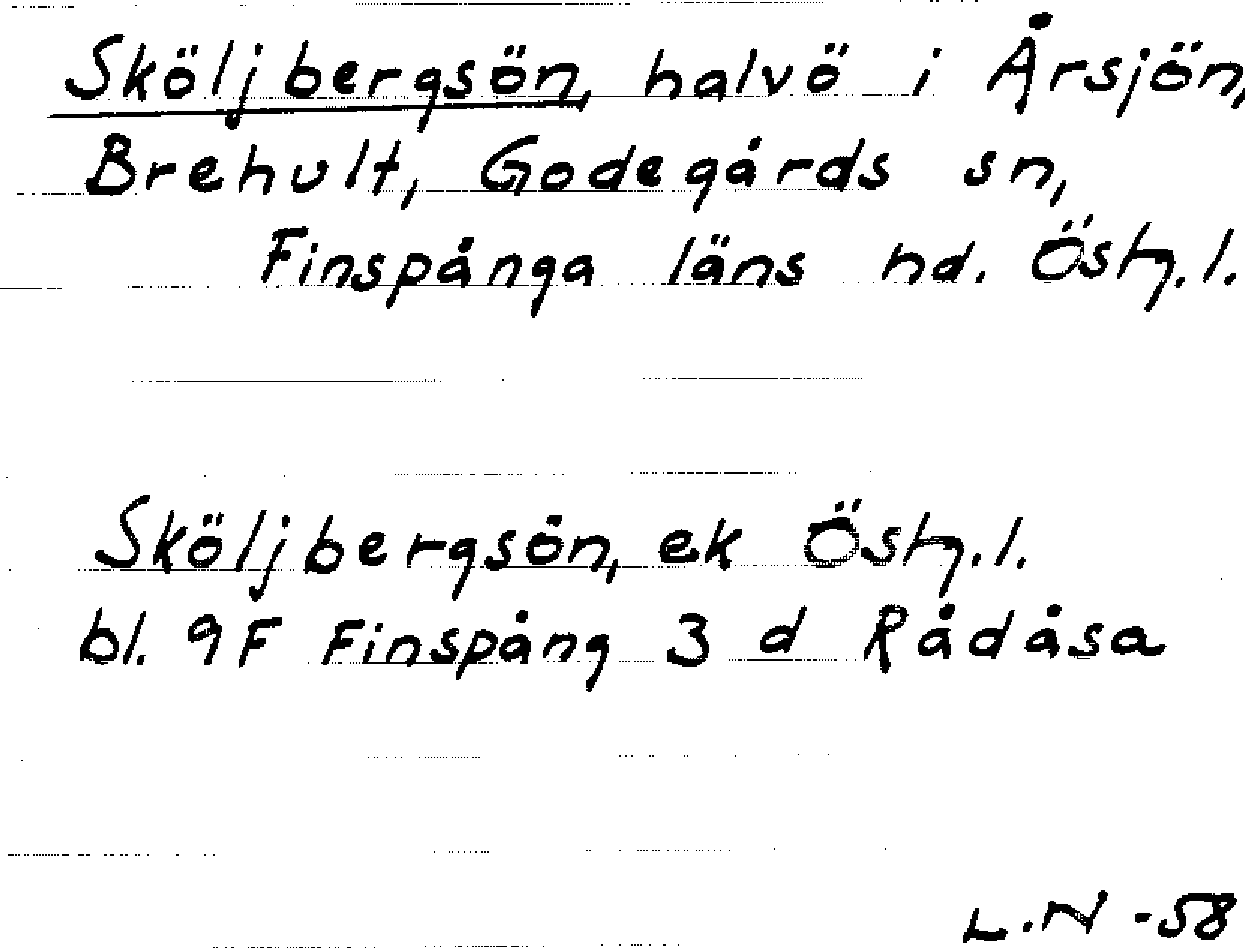 Sköljbergsön, halvö i Årsjön,
Brehult, Godegårds sn,
Finspånga läns hd. Östg. l.
Sköljbergsön, ek Östg. l.
bl. 9F Finspång 3 d Rådåsa
L.N -58